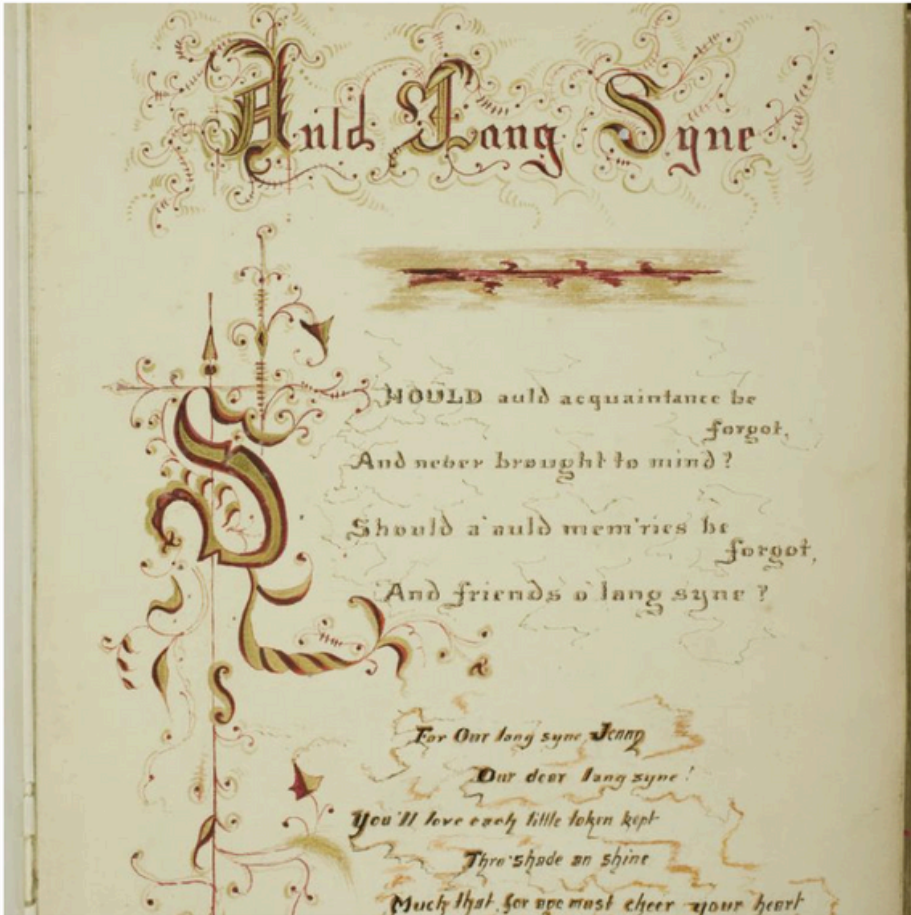 Auld Lang Syne
SHOULD auld acquaintance be
forgot,
And never brought to mind?
Should a' auld mem'ries be
forgot,
And friends o' lang syne?
For Our lang syne, Jenny
Our dear lang syne!
You'll love each little token kept
Thro' shade an shine
Much that for aye must cheer your heart